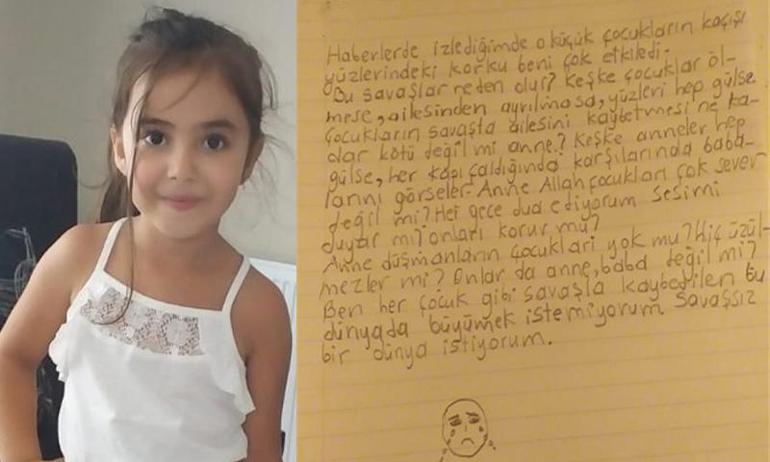 Haberlerde izlediğimde o küçük çocukların kaçışı
yüzlerindeki korku beni çok etkiledi.
Bu savaşlar neden olur? Keşke çocuklar öl-
mese, ailesinden ayrılmasa, yüzleri hep gülse
çocukların savaşta ailesini kaybetmesi ne ka-
dar kötü değil mi anne? Keşke anneler hep
gülse, her kapı çaldığında karşılarında baba-
larını görseler. Anne Allah çocukları çok sever
değil mi? Her gece dua ediyorum sesimi
duyar mı onları korur mu?
Anne düşmanların çocukları yok mu? Hiç üzül-
mezler mi? Onlar da anne, baba değil mi?
Ben her çocuk gibi savaşla kaybedilen bu
dünyada büyümek istemiyorum. Savaşsız
bir dünya istiyorum.